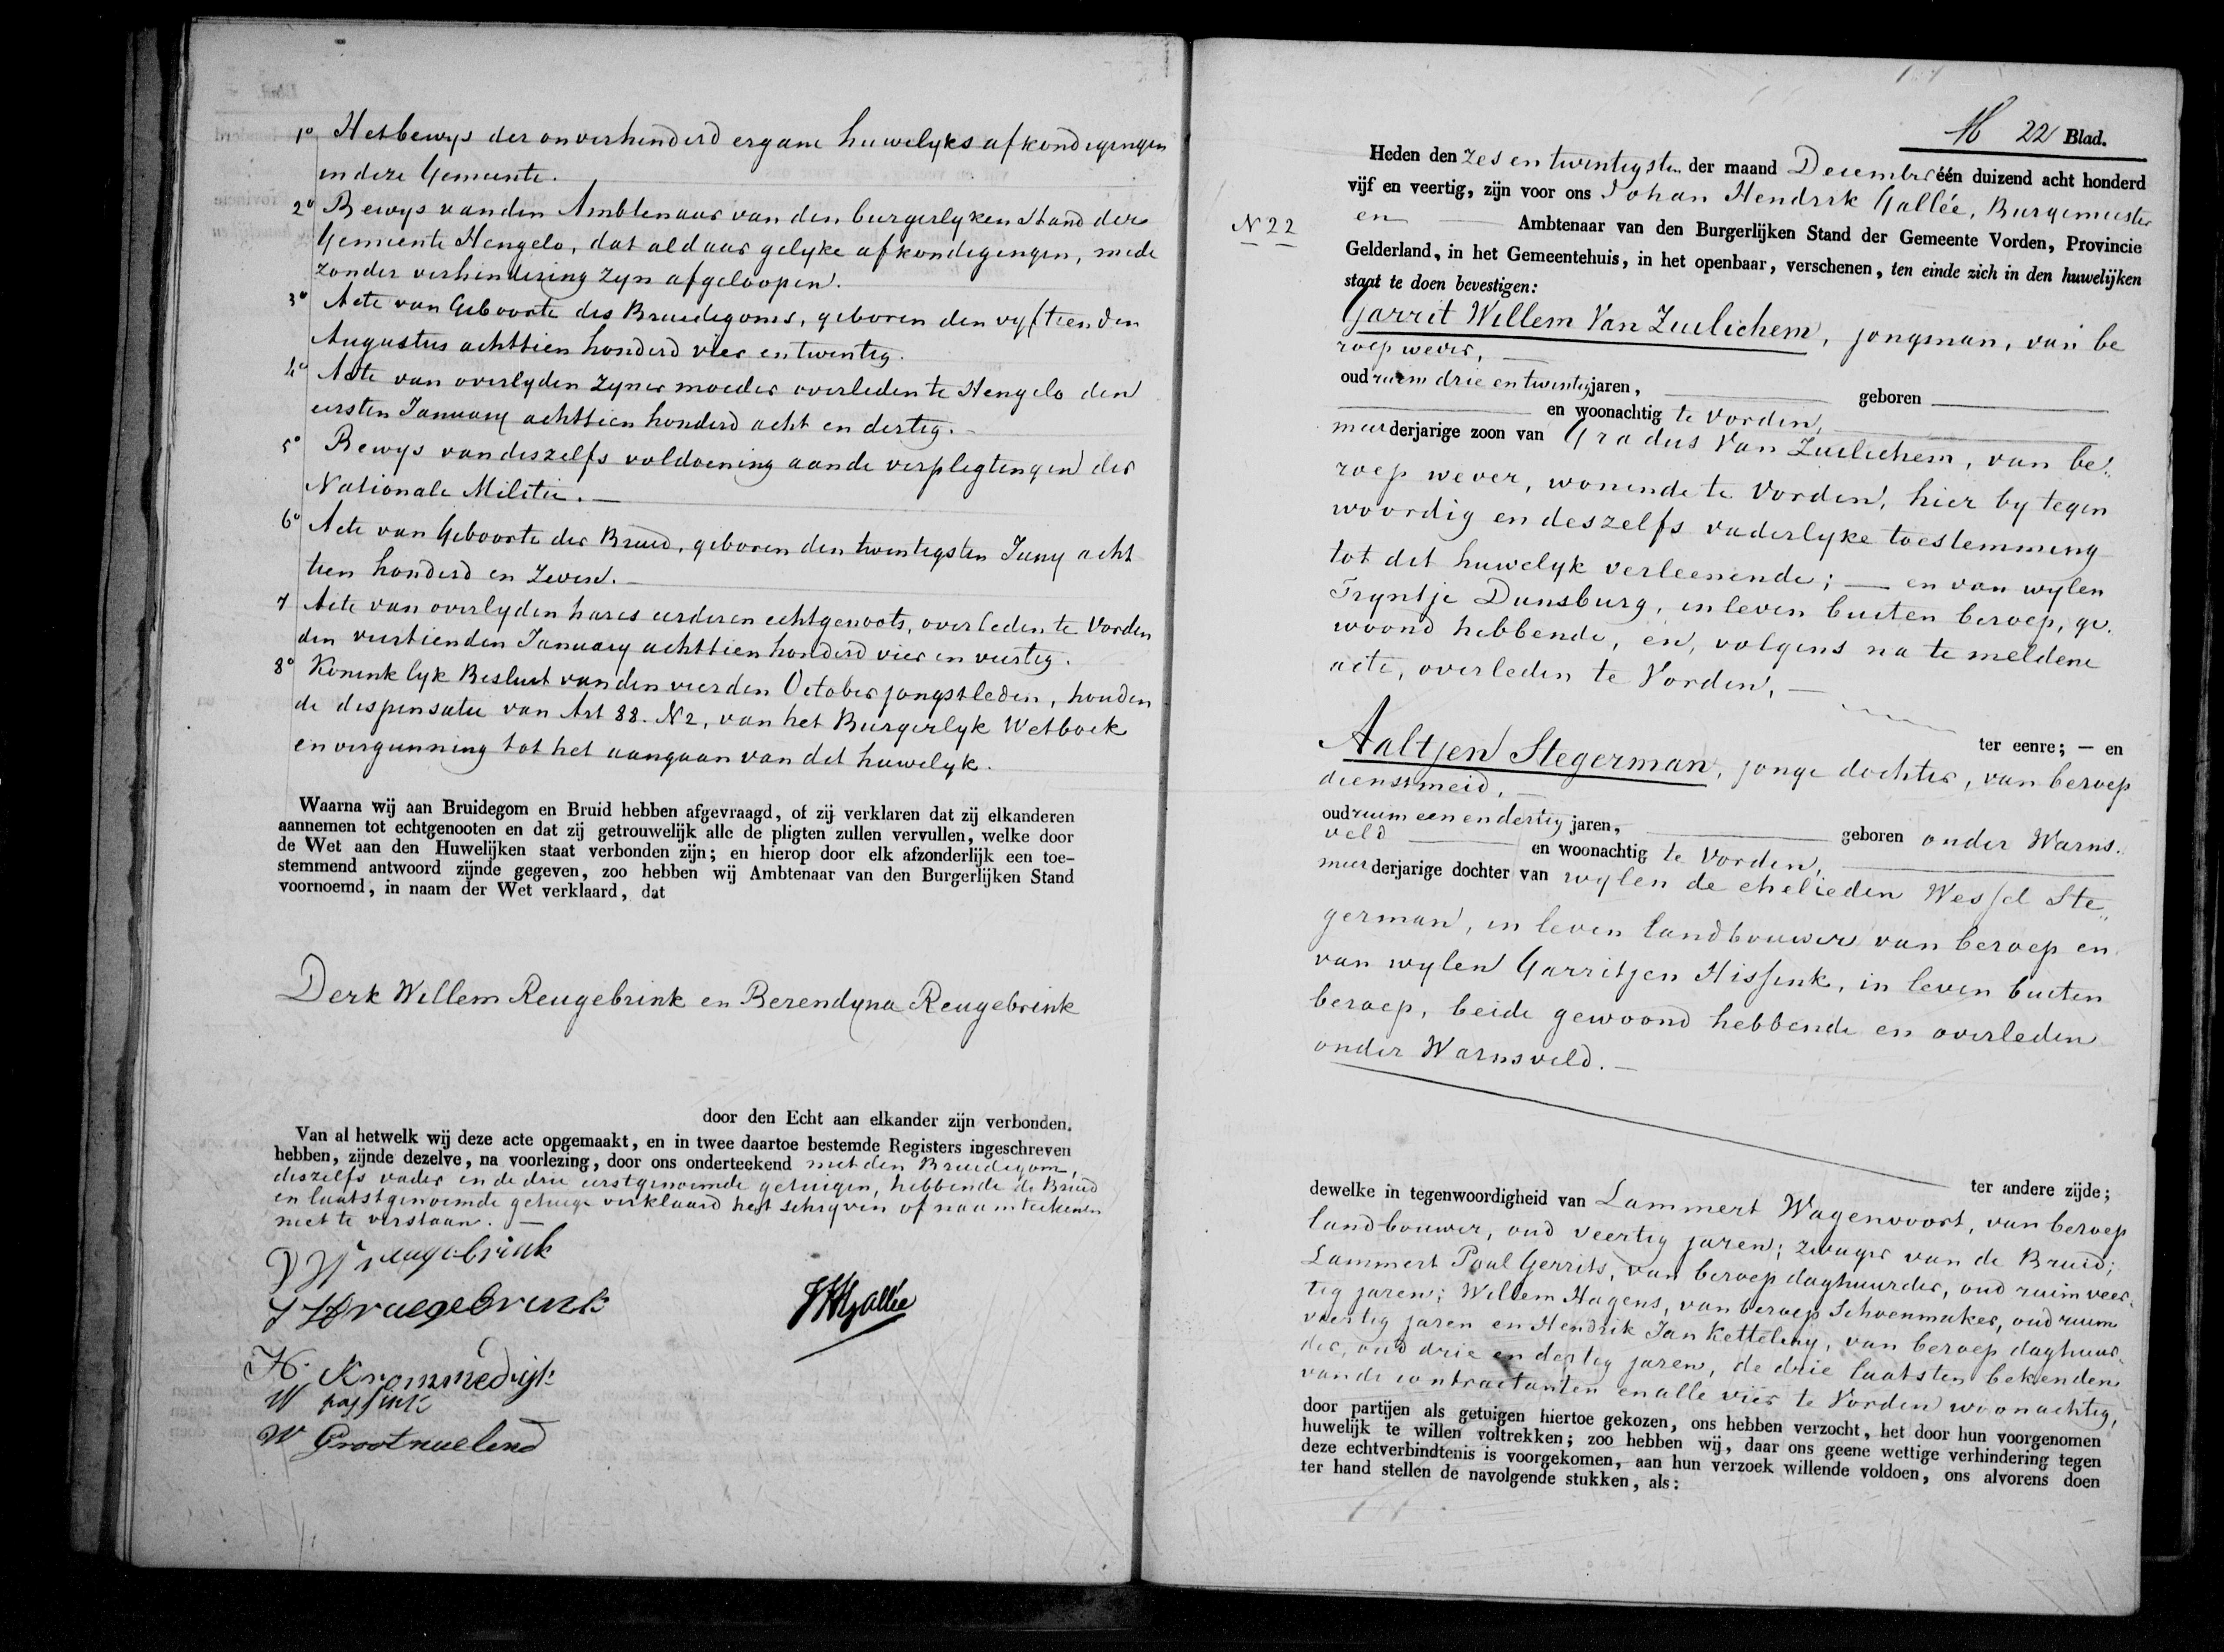 1o Het bewys der onverhinderd ergane huwelyks afkondigingen
in deze Gemeente.
2o Bewys van den Ambtenaar van den burgerlyken Stand der
Gemeente Hengelo, dat aldaar gelyke afkondigingen, mede
zonder verhindering zyn afgeloopen.
3o Acte van Geboorte des Bruidegoms, geboren den vyftienden
Augustus achttien honderd vier en twintig.
4o Acte van overlyden zyner moeder overleden te Hengelo den
eersten January achttien honderd acht en dertig.
5o Bewys van deszelfs voldoening aan de verpligtingen der
Nationale Militie. —
6o Acte van Geboorte der Bruid, geboren den twintigsten Juny acht
tien honderd en zeven. —
7 Acte van overlyden hares eerderen echtgenoots, overleden te Vorden
den veertienden January achttien honderd vier en veertig.
8o Koninklyk Besluit van den vierden October jongstleden, houden
de dispensatie van Art 88. N 2, van het Burgerlyk Wetboek
en vergunning tot het aangaan van dit huwelyk.
Waarna wij aan Bruidegom en Bruid hebben afgevraagd, of zij verklaren dat zij elkanderen
aannemen tot echtgenooten en dat zij getrouwelijk alle de pligten zullen vervullen, welke door
de Wet aan den Huwelijken staat verbonden zijn; en hierop door elk afzonderlijk een toe-
stemmend antwoord zijnde gegeven, zoo hebben wij Ambtenaar van den Burgerlijken Stand
voornoemd, in naam der Wet verklaard, dat
Derk Willem Reugebrink en Berendyna Reugebrink
door den Echt aan elkander zijn verbonden.
Van al hetwelk wij deze acte opgemaakt, en in twee daartoe bestemde Registers ingeschreven
hebben, zijnde dezelve, na voorlezing, door ons onderteekend met den Bruidegom,
deszelfs vader en de drie eerstgenoemde getuigen, hebbende de Bruid
en laatstgenoemde getuige verklaard het schryven of naamteekenen
niet te verstaan. —
reugebrink
JHGallée
K. Krommedijk
W
W Grootnuelend
22 Blad.
N 22
Heden den zes en twintigsten der maand December één duizend acht honderd
vijf en veertig, zijn voor ons Johan Hendrik Gallée, Burgemeester
en — Ambtenaar van den Burgerlijken Stand der Gemeente Vorden, Provincie
Gelderland, in het Gemeentehuis, in het openbaar, verschenen, ten einde zich in den huwelijken
staat te doen bevestigen:
Garrit Willem Van Zuilichem, jongman, van be
roep wever, —
oud ruim drie en twintig jaren, — geboren —
— en woonachtig te Vorden, —
meerderjarige zoon van Gradus Van Zuilichem, van be
roep wever, wonende te Vorden, hier by tegen
woordig en deszelfs vaderlyke toestemming
tot dit huwelyk verleenende; — en van wylen
Tryntje Dunsburg, in leven buiten beroep, ge
woond hebbende, en, volgens na te meldene
acte, overleden te Vorden, —
ter eenre; — en
Aaltjen Stegerman, jonge dochter, van beroep
dienstmeid, —
oud ruim een en dertig jaren, — geboren onder Warns
veld — en woonachtig te Vorden, —
meerderjarige dochter van wylen de ehelieden Wessel Ste„
german, in leven landbouwer van beroep en
van wylen Garritjen Hissink, in leven buiten
beroep, beide gewoond hebbende en overleden
onder Warnsveld. —
ter andere zijde;
dewelke in tegenwoordigheid van Lammert Wagenvoort, van beroep
landbouwer, oud veertig jaren; zwager van de Bruid;
Lammert Paul Gerrits, van beroep daghuurder, oud ruim veer„
tig jaren; Willem Hagens, van beroep Schoenmaker, oud ruim
veertig jaren en Hendrik Jan Ketteleny, van beroep daghuur„
der, oud drie en dertig jaren, de drie laatsten bekenden
van de contractanten en alle vier te Vorden woonachtig,
door partijen als getuigen hiertoe gekozen, ons hebben verzocht, het door hun voorgenomen
huwelijk te willen voltrekken; zoo hebben wij, daar ons geene wettige verhindering tegen
deze echtverbindtenis is voorgekomen, aan hun verzoek willende voldoen, ons alvorens doen
ter hand stellen de navolgende stukken, als: